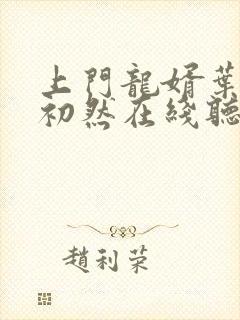 上門龍婿葉
初然在綫聽
趙利荣